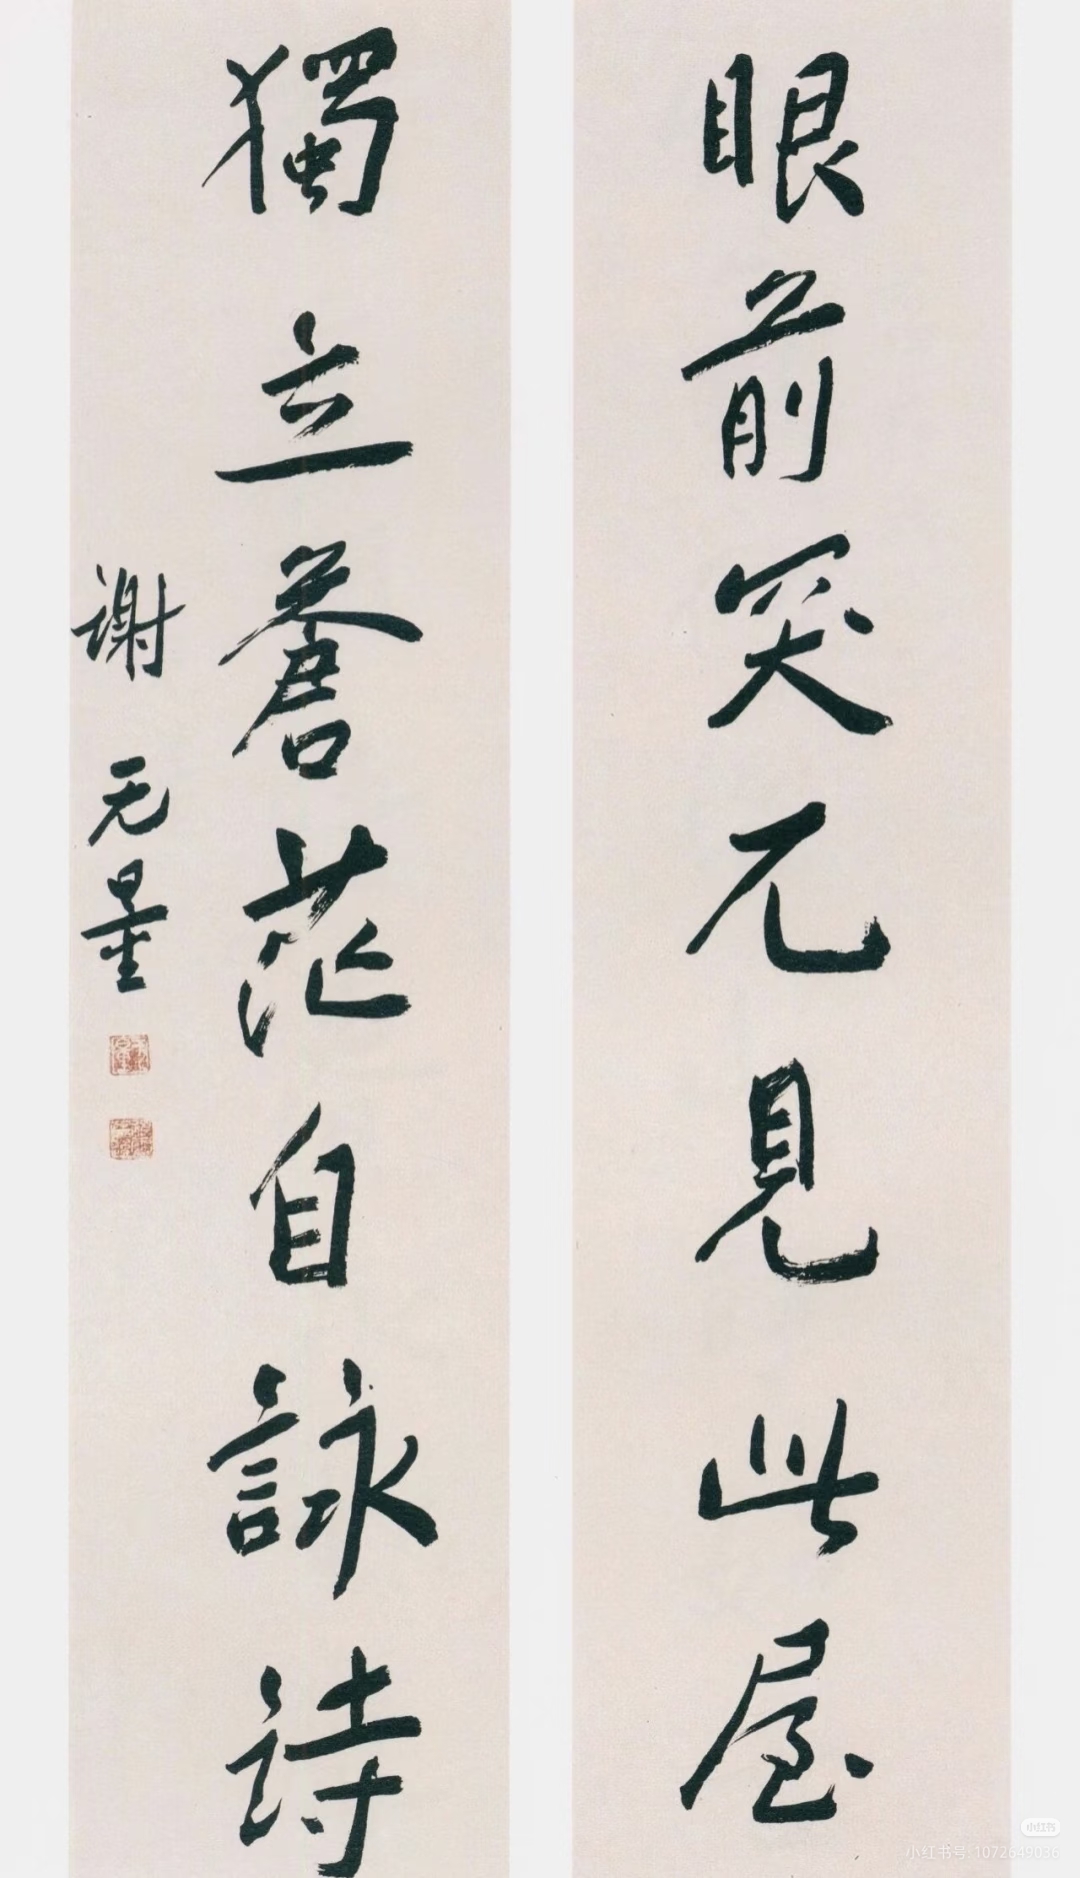 眼前突兀見此屋
獨立蒼茫自詠詩
谢无量
小红书
小红书号:1072649036